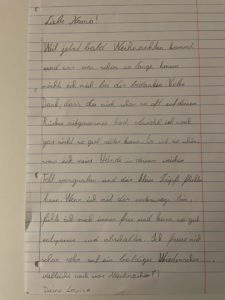 Liebe Hanna!
Weil jetzt bald Weihnachten kommt
und wir uns schon so lange kennen
möchte ich mich bei dir bedanken. Vielen
Dank, dass du mich schon so oft auf deinem
Rücken mitgenommen hast, obwohl ich noch
gar nicht so gut reiten kann. Es ist so schön,
wenn ich meine Hände in deinem weichen
Fell vergraben und dir kleine Zöpfe flechten
kann. Wenn ich mit dir unterwegs bin,
fühle ich mich immer frei und kann so gut
entspannen und abschalten. Ich freue mich
schon sehr auf ein baldiges Wiedersehen...
vielleicht noch vor Weihnachten?
Deine